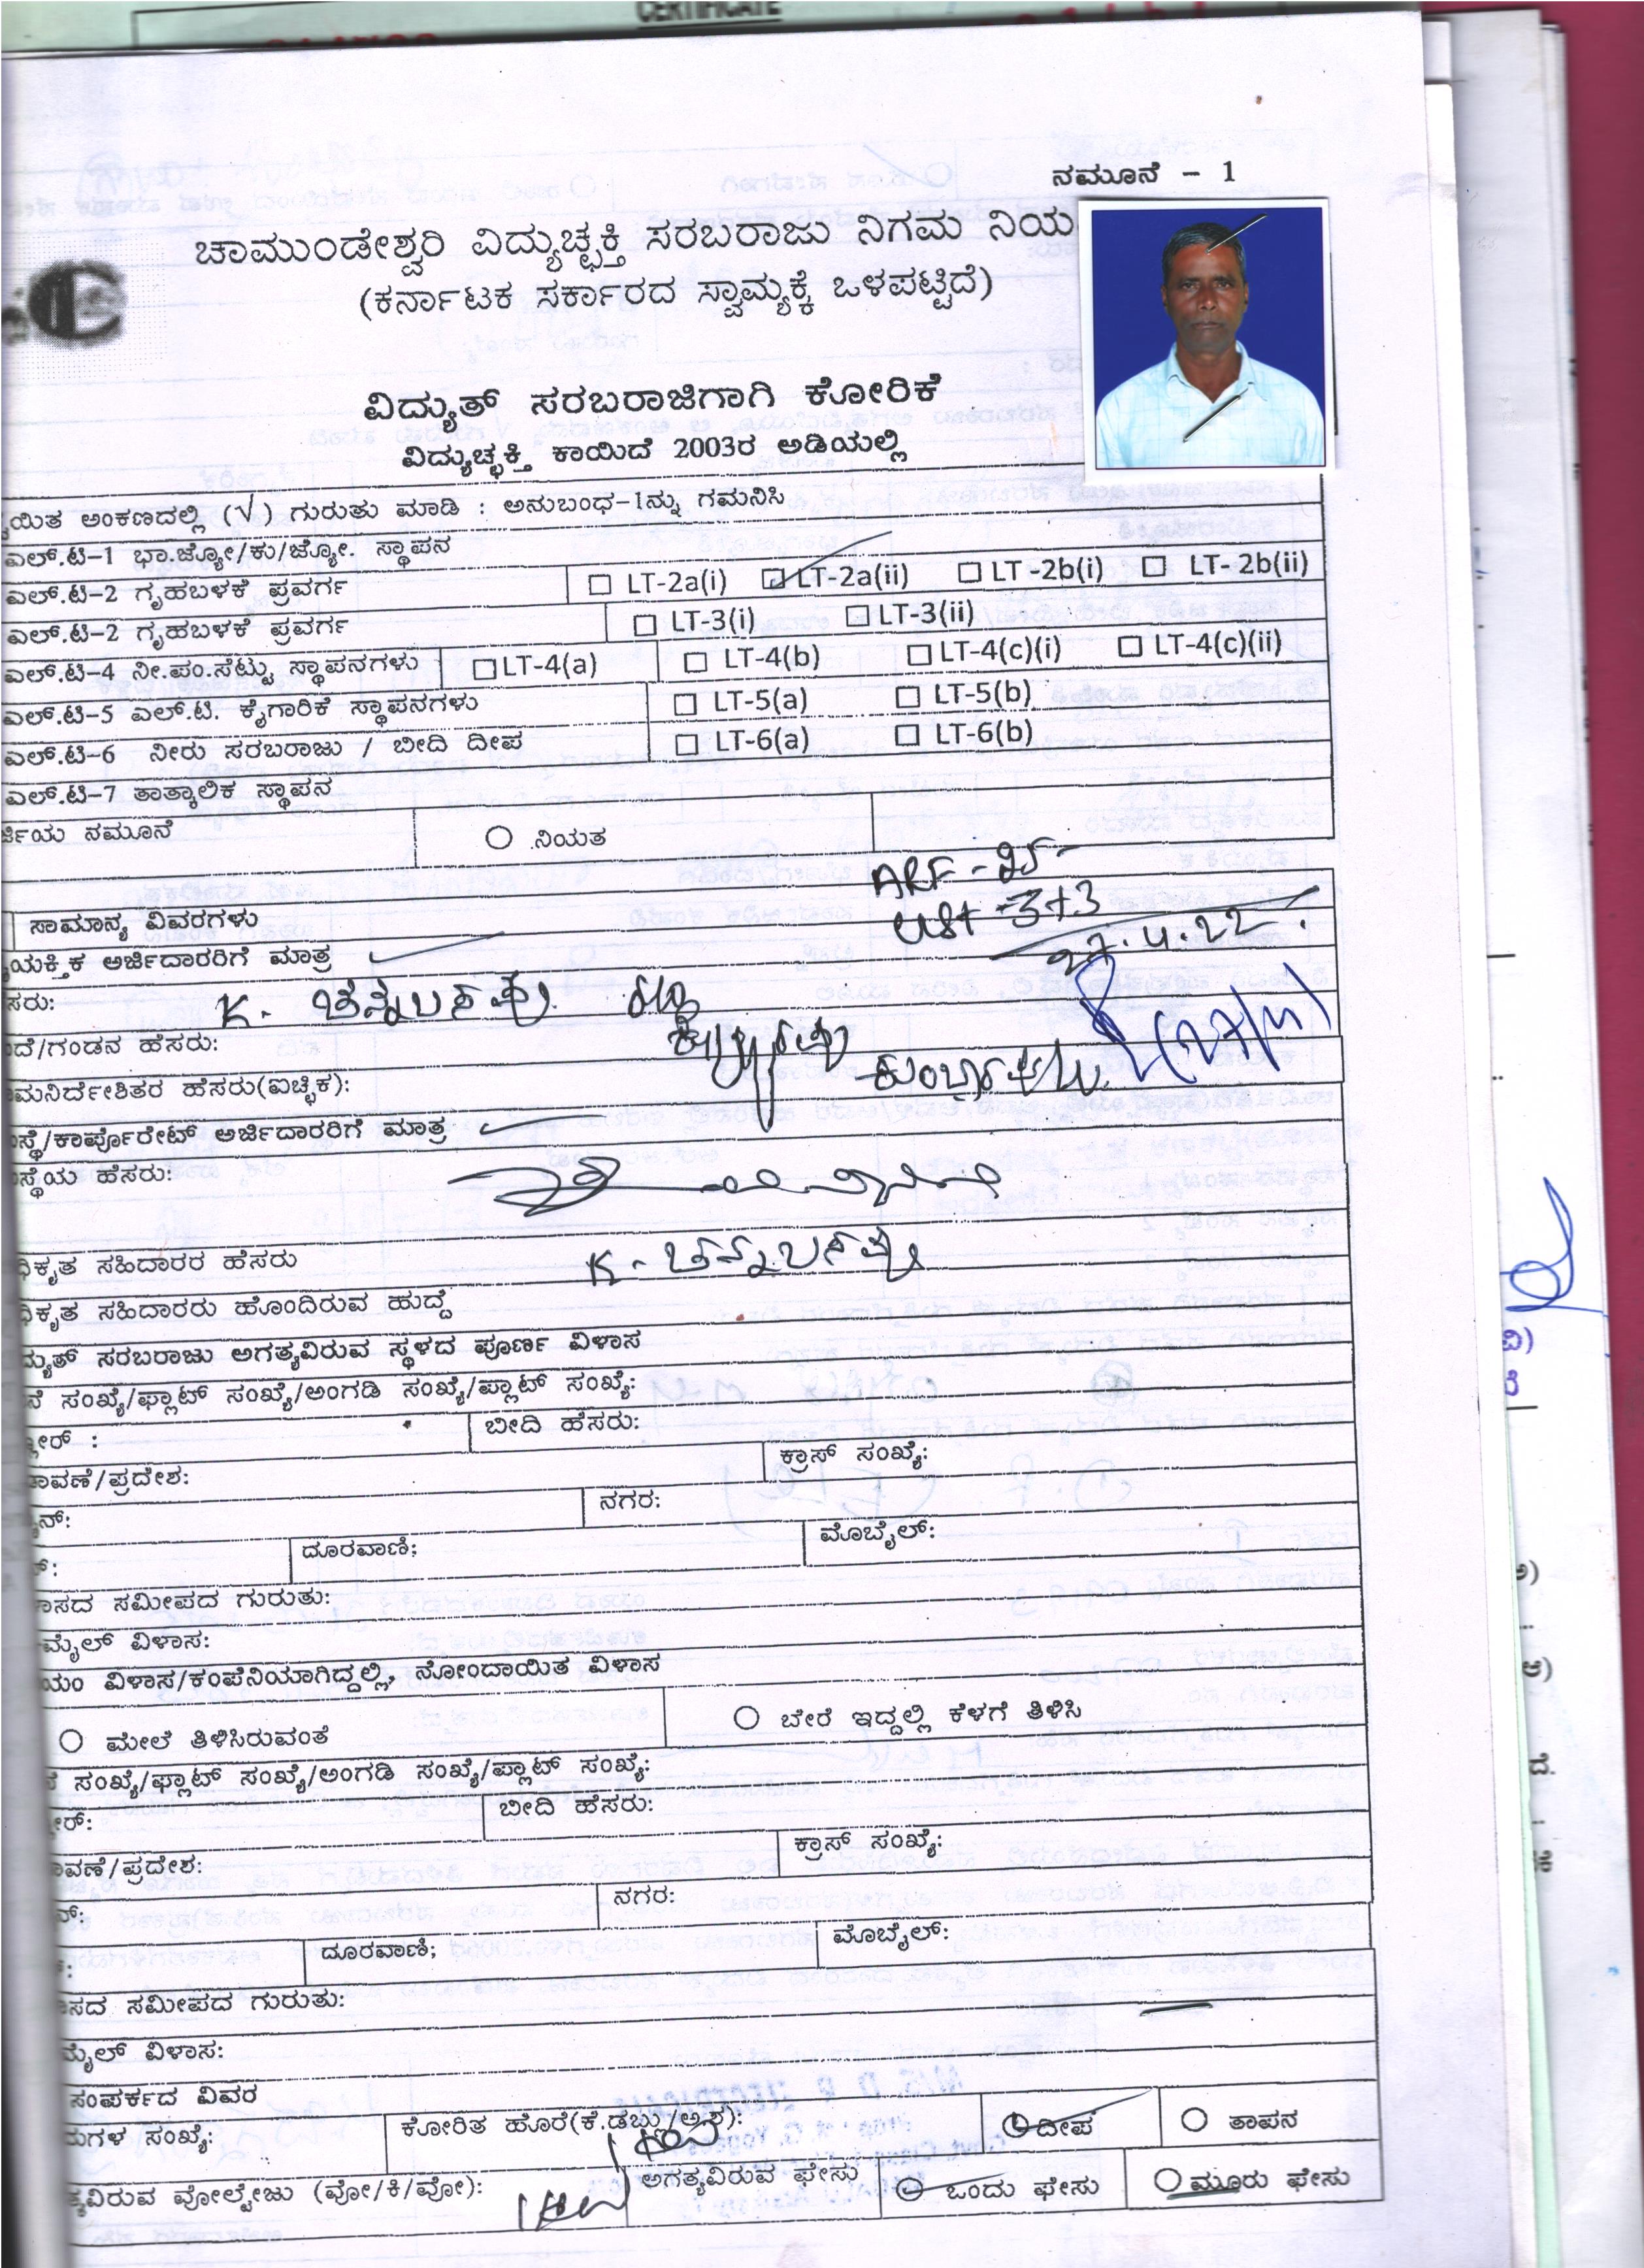 CERTIFICATE
ನಮೂನೆ - 1
ಚಾಮುಂಡೇಶ್ವರಿ ವಿದ್ಯುಚ್ಛಕ್ತಿ ಸರಬರಾಜು ನಿಗಮ ನಿಯ
(ಕರ್ನಾಟಕ ಸರ್ಕಾರದ ಸ್ವಾಮ್ಯಕ್ಕೆ ಒಳಪಟ್ಟಿದೆ)
ವಿದ್ಯುತ್ ಸರಬರಾಜಿಗಾಗಿ ಕೋರಿಕೆ
ವಿದ್ಯುಚ್ಛಕ್ತಿ ಕಾಯಿದೆ 2003ರ ಅಡಿಯಲ್ಲಿ
ಯಿತ ಅಂಕಣದಲ್ಲಿ (√) ಗುರುತು ಮಾಡಿ : ಅನುಬಂಧ-1ನ್ನು ಗಮನಿಸಿ
ಎಲ್.ಟಿ-1 ಭಾ.ಜ್ಯೋ/ಕು/ಜ್ಯೋ. ಸ್ಥಾಪನ
ಎಲ್.ಟಿ-2 ಗೃಹಬಳಕೆ ಪ್ರವರ್ಗ ☐ LT-2a(i) ☑ LT-2a(ii) ☐ LT -2b(i) ☐ LT- 2b(ii)
ಎಲ್.ಟಿ-2 ಗೃಹಬಳಕೆ ಪ್ರವರ್ಗ ☐ LT-3(i) ☐ LT-3(ii)
ಎಲ್.ಟಿ-4 ನೀ.ಪಂ.ಸೆಟ್ಟು ಸ್ಥಾಪನಗಳು ☐ LT-4(a) ☐ LT-4(b) ☐ LT-4(c)(i) ☐ LT-4(c)(ii)
ಎಲ್.ಟಿ-5 ಎಲ್.ಟಿ. ಕೈಗಾರಿಕೆ ಸ್ಥಾಪನಗಳು ☐ LT-5(a) ☐ LT-5(b)
ಎಲ್.ಟಿ-6 ನೀರು ಸರಬರಾಜು / ಬೀದಿ ದೀಪ ☐ LT-6(a) ☐ LT-6(b)
ಎಲ್.ಟಿ-7 ತಾತ್ಕಾಲಿಕ ಸ್ಥಾಪನ
ರ್ಜಿಯ ನಮೂನೆ ○ ನಿಯತ
ARF -
ಸಾಮಾನ್ಯ ವಿವರಗಳು 3+3
ಯಕ್ತಿಕ ಅರ್ಜಿದಾರರಿಗೆ ಮಾತ್ರ 27.4.22
ಸರು: K. ಚನ್ನಬಸಪ್ಪ
ದೆ/ಗಂಡನ ಹೆಸರು:
ಮನಿರ್ದೇಶಿತರ ಹೆಸರು(ಐಚ್ಛಿಕ):
ಸ್ಥೆ/ಕಾರ್ಪೊರೇಟ್ ಅರ್ಜಿದಾರರಿಗೆ ಮಾತ್ರ
ಸ್ಥೆಯ ಹೆಸರು:
ಧಿಕೃತ ಸಹಿದಾರರ ಹೆಸರು K. ಚನ್ನಬಸಪ್ಪ
ಧಿಕೃತ ಸಹಿದಾರರು ಹೊಂದಿರುವ ಹುದ್ದೆ
ದ್ಯುತ್ ಸರಬರಾಜು ಅಗತ್ಯವಿರುವ ಸ್ಥಳದ ಪೂರ್ಣ ವಿಳಾಸ
ನೆ ಸಂಖ್ಯೆ/ಫ್ಲಾಟ್ ಸಂಖ್ಯೆ/ಅಂಗಡಿ ಸಂಖ್ಯೆ/ಪ್ಲಾಟ್ ಸಂಖ್ಯೆ:
್ಲೋರ್ : ಬೀದಿ ಹೆಸರು:
ಡಾವಣೆ/ಪ್ರದೇಶ: ಕ್ರಾಸ್ ಸಂಖ್ಯೆ:
ನ್: ನಗರ:
ದೂರವಾಣಿ; ಮೊಬೈಲ್:
ಾಸದ ಸಮೀಪದ ಗುರುತು:
ಮೈಲ್ ವಿಳಾಸ:
ಯಂ ವಿಳಾಸ/ಕಂಪೆನಿಯಾಗಿದ್ದಲ್ಲಿ, ನೋಂದಾಯಿತ ವಿಳಾಸ
○ ಮೇಲೆ ತಿಳಿಸಿರುವಂತೆ ○ ಬೇರೆ ಇದ್ದಲ್ಲಿ ಕೆಳಗೆ ತಿಳಿಸಿ
ಸಂಖ್ಯೆ/ಫ್ಲಾಟ್ ಸಂಖ್ಯೆ/ಅಂಗಡಿ ಸಂಖ್ಯೆ/ಪ್ಲಾಟ್ ಸಂಖ್ಯೆ:
ೋರ್: ಬೀದಿ ಹೆಸರು:
ಾವಣೆ/ಪ್ರದೇಶ: ಕ್ರಾಸ್ ಸಂಖ್ಯೆ:
ನ್: ನಗರ:
ದೂರವಾಣಿ; ಮೊಬೈಲ್:
ಾಸದ ಸಮೀಪದ ಗುರುತು:
ಮೈಲ್ ವಿಳಾಸ:
ಸಂಪರ್ಕದ ವಿವರ
ಮಗಳ ಸಂಖ್ಯೆ: ಕೋರಿತ ಹೊರೆ(ಕೆ.ಡಬ್ಲ್ಯು/ಅಶ): ದೀಪ ○ ತಾಪನ
ತ್ಯವಿರುವ ವೋಲ್ಟೇಜು (ವೋ/ಕಿ/ವೋ): ಅಗತ್ಯವಿರುವ ಫೇಸು ○ ಒಂದು ಫೇಸು ○ ಮೂರು ಫೇಸು